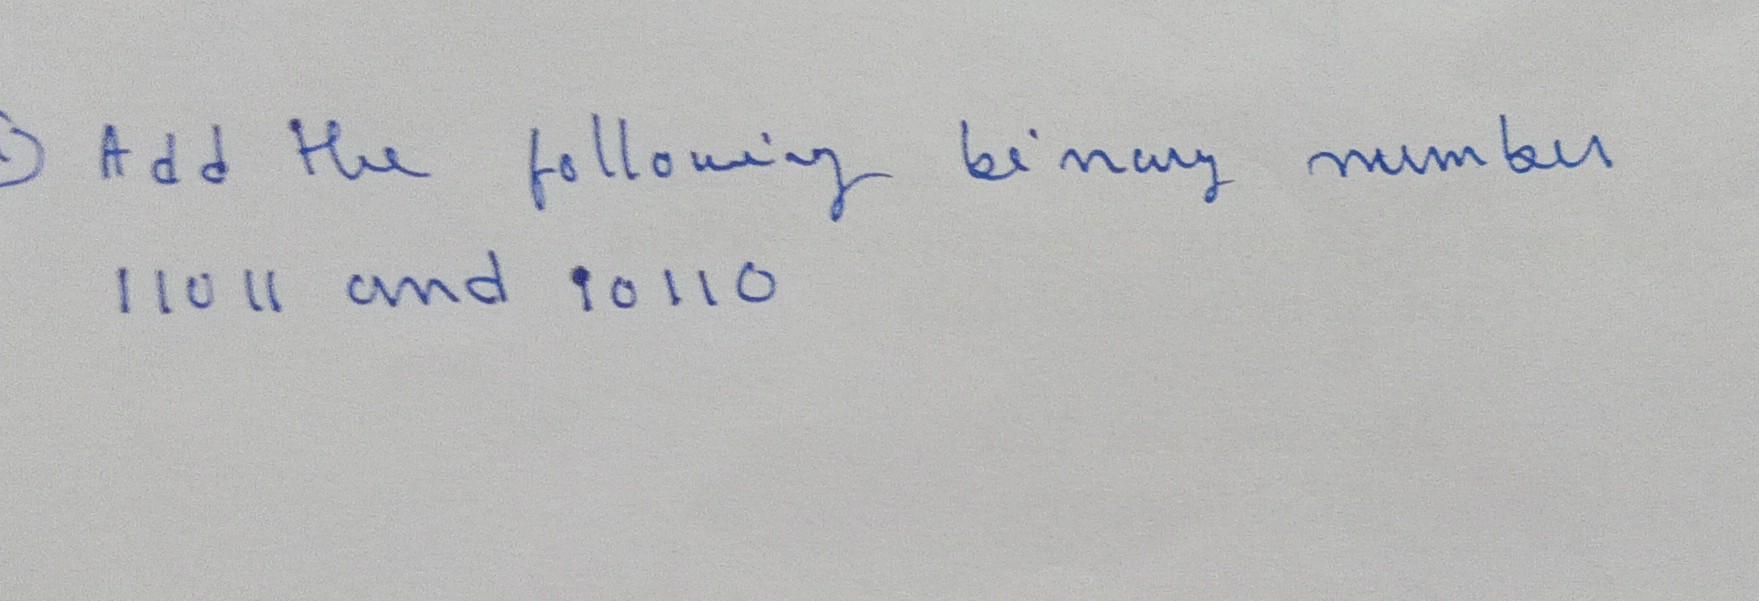 i) Add the following binary number
11011 and 10110